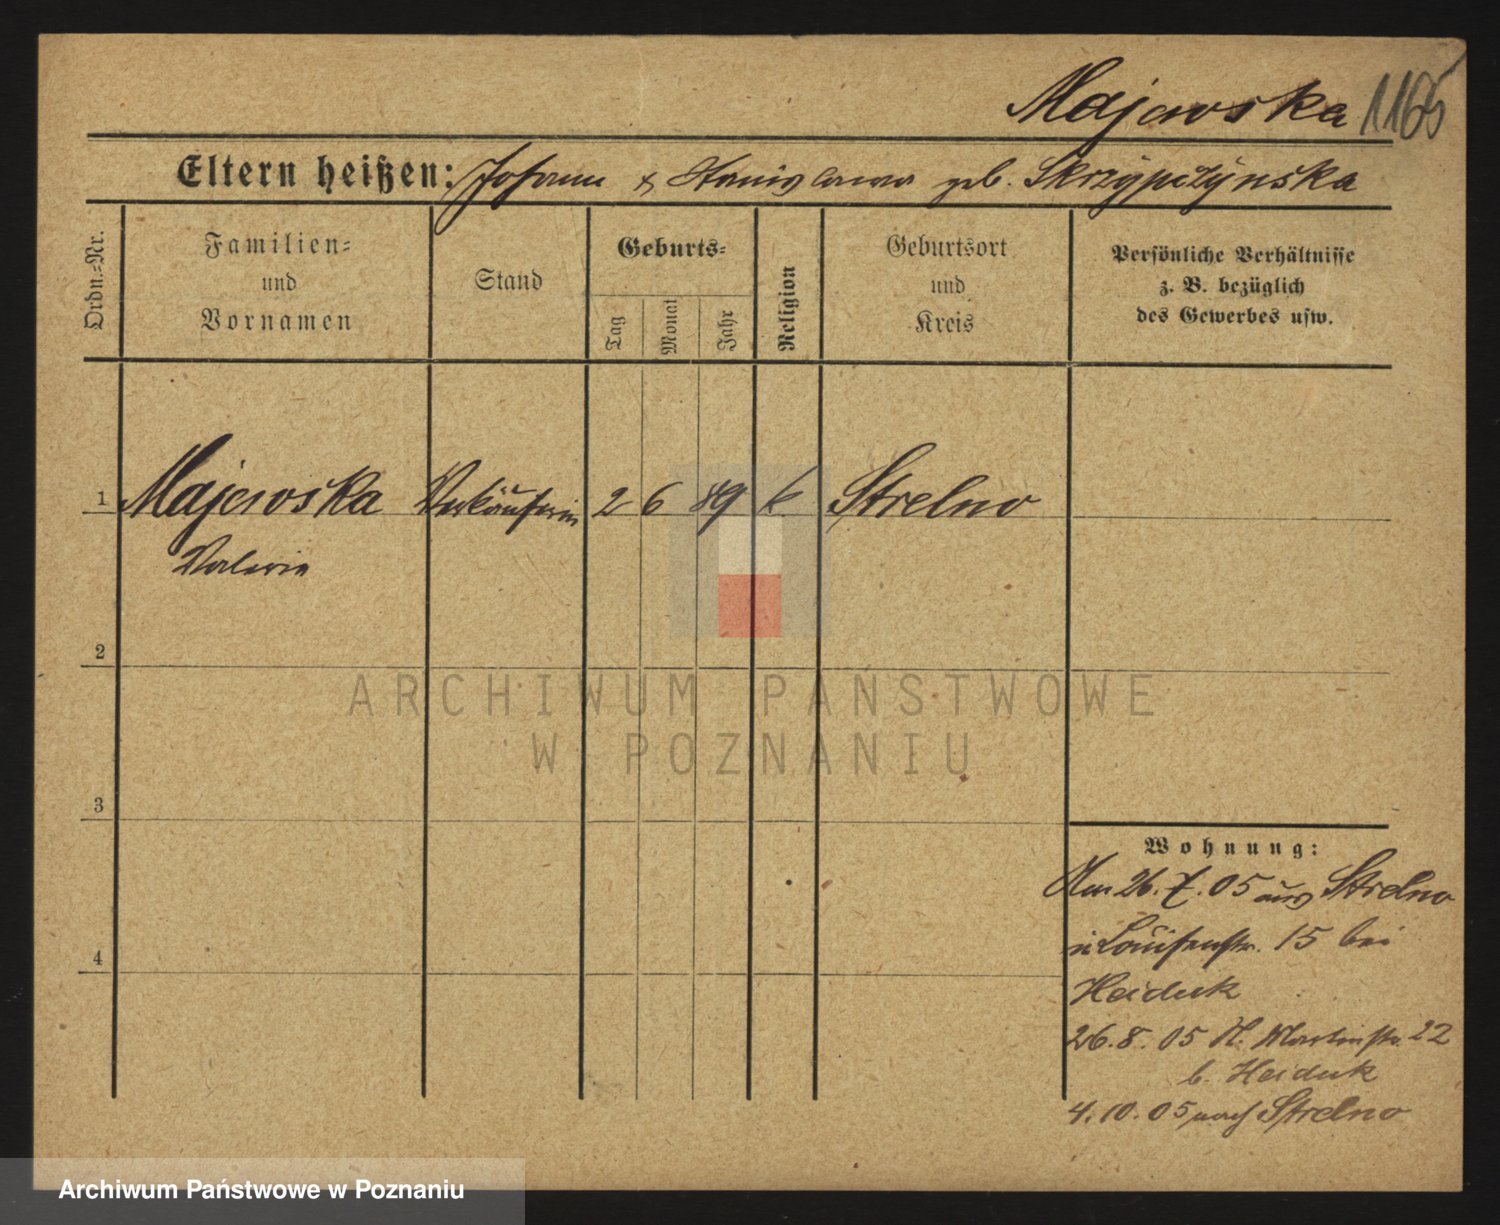 Majewska 1165
Eltern heißen: Johann & Stanislawa geb. Skrzypczynska
Ordn.-Nr.
Familien-
und
Vornamen
Stand
Geburts-
Tag
Monat
Jahr
Religion
Geburtsort
und
Kreis
Persönliche Verhältnisse
z. B. bezüglich
des Gewerbes usw.
1 Majewska Verkäuferin 2 6 89 k Strelno
Valeria
2
3
4
Wohnung:
Am 26.7.05 aus Strelno
n. Louisenstr. 15 bei
Heiduk
26.8.05 St. Martinstr. 22
b. Heiduk
4.10.05 nach Strelno
ARCHIWUM PAŃSTWOWE
W POZNANIU
Archiwum Państwowe w Poznaniu